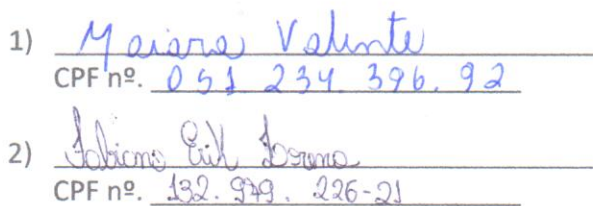 1) Maiara Valente
CPF nº. 051 234 396. 92
2) Fabiano Erik Lorena
CPF nº. 132. 979. 226-21